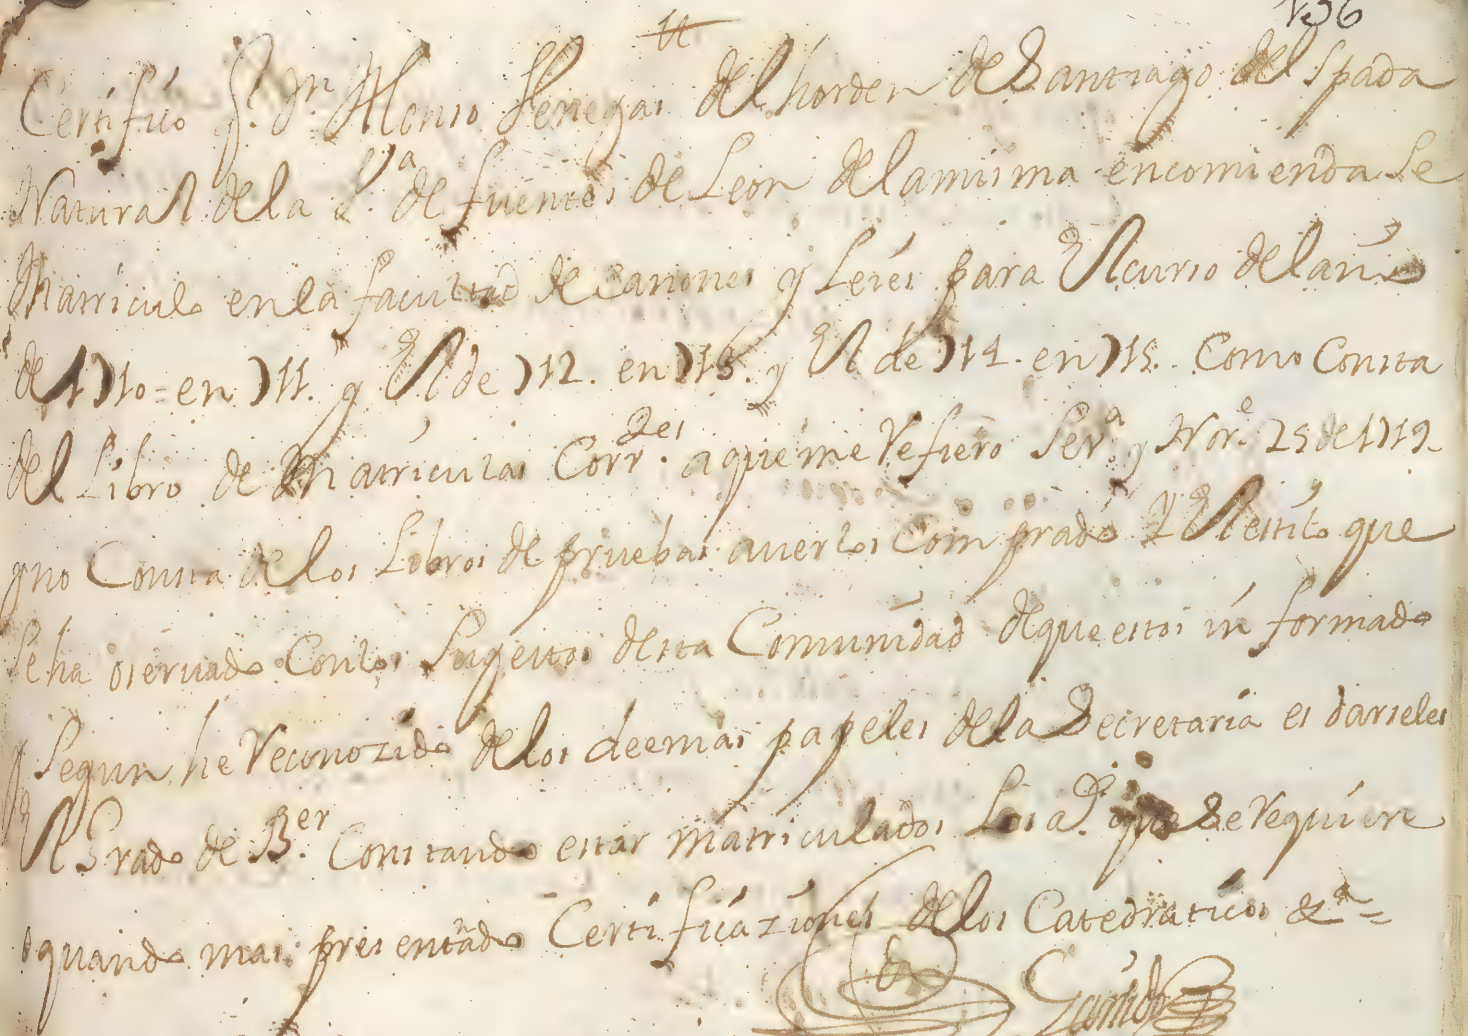 136
Certifico q. Dn Alonso Venegas del horden de Santiago del spada
Natural de la Va de fuentes de Leon de la misma encomienda Se
Matriculo en la facultad de Canones y Leies para El curso del año
de 1710 = en 711. y El de 712. en 713. y El de 714. en 715. Como Consta
del Libro de Matriculas Corr.des a que me Refiero Ser.a y Nov.e 25 de 1719
y no Consta de los Libros de pruebas averlos Comprado Y El estilo que
Se ha oservado Con los Sugettos desta Comunidad de que estoi informado
y Segun he Reconozido de los deemas papeles de la Secretaria es darseles
El Grado de B.er Constando estar matriculados Los a.s que Se Requiere
o quando mas presentado Certificaziones de los Catedraticos &a =